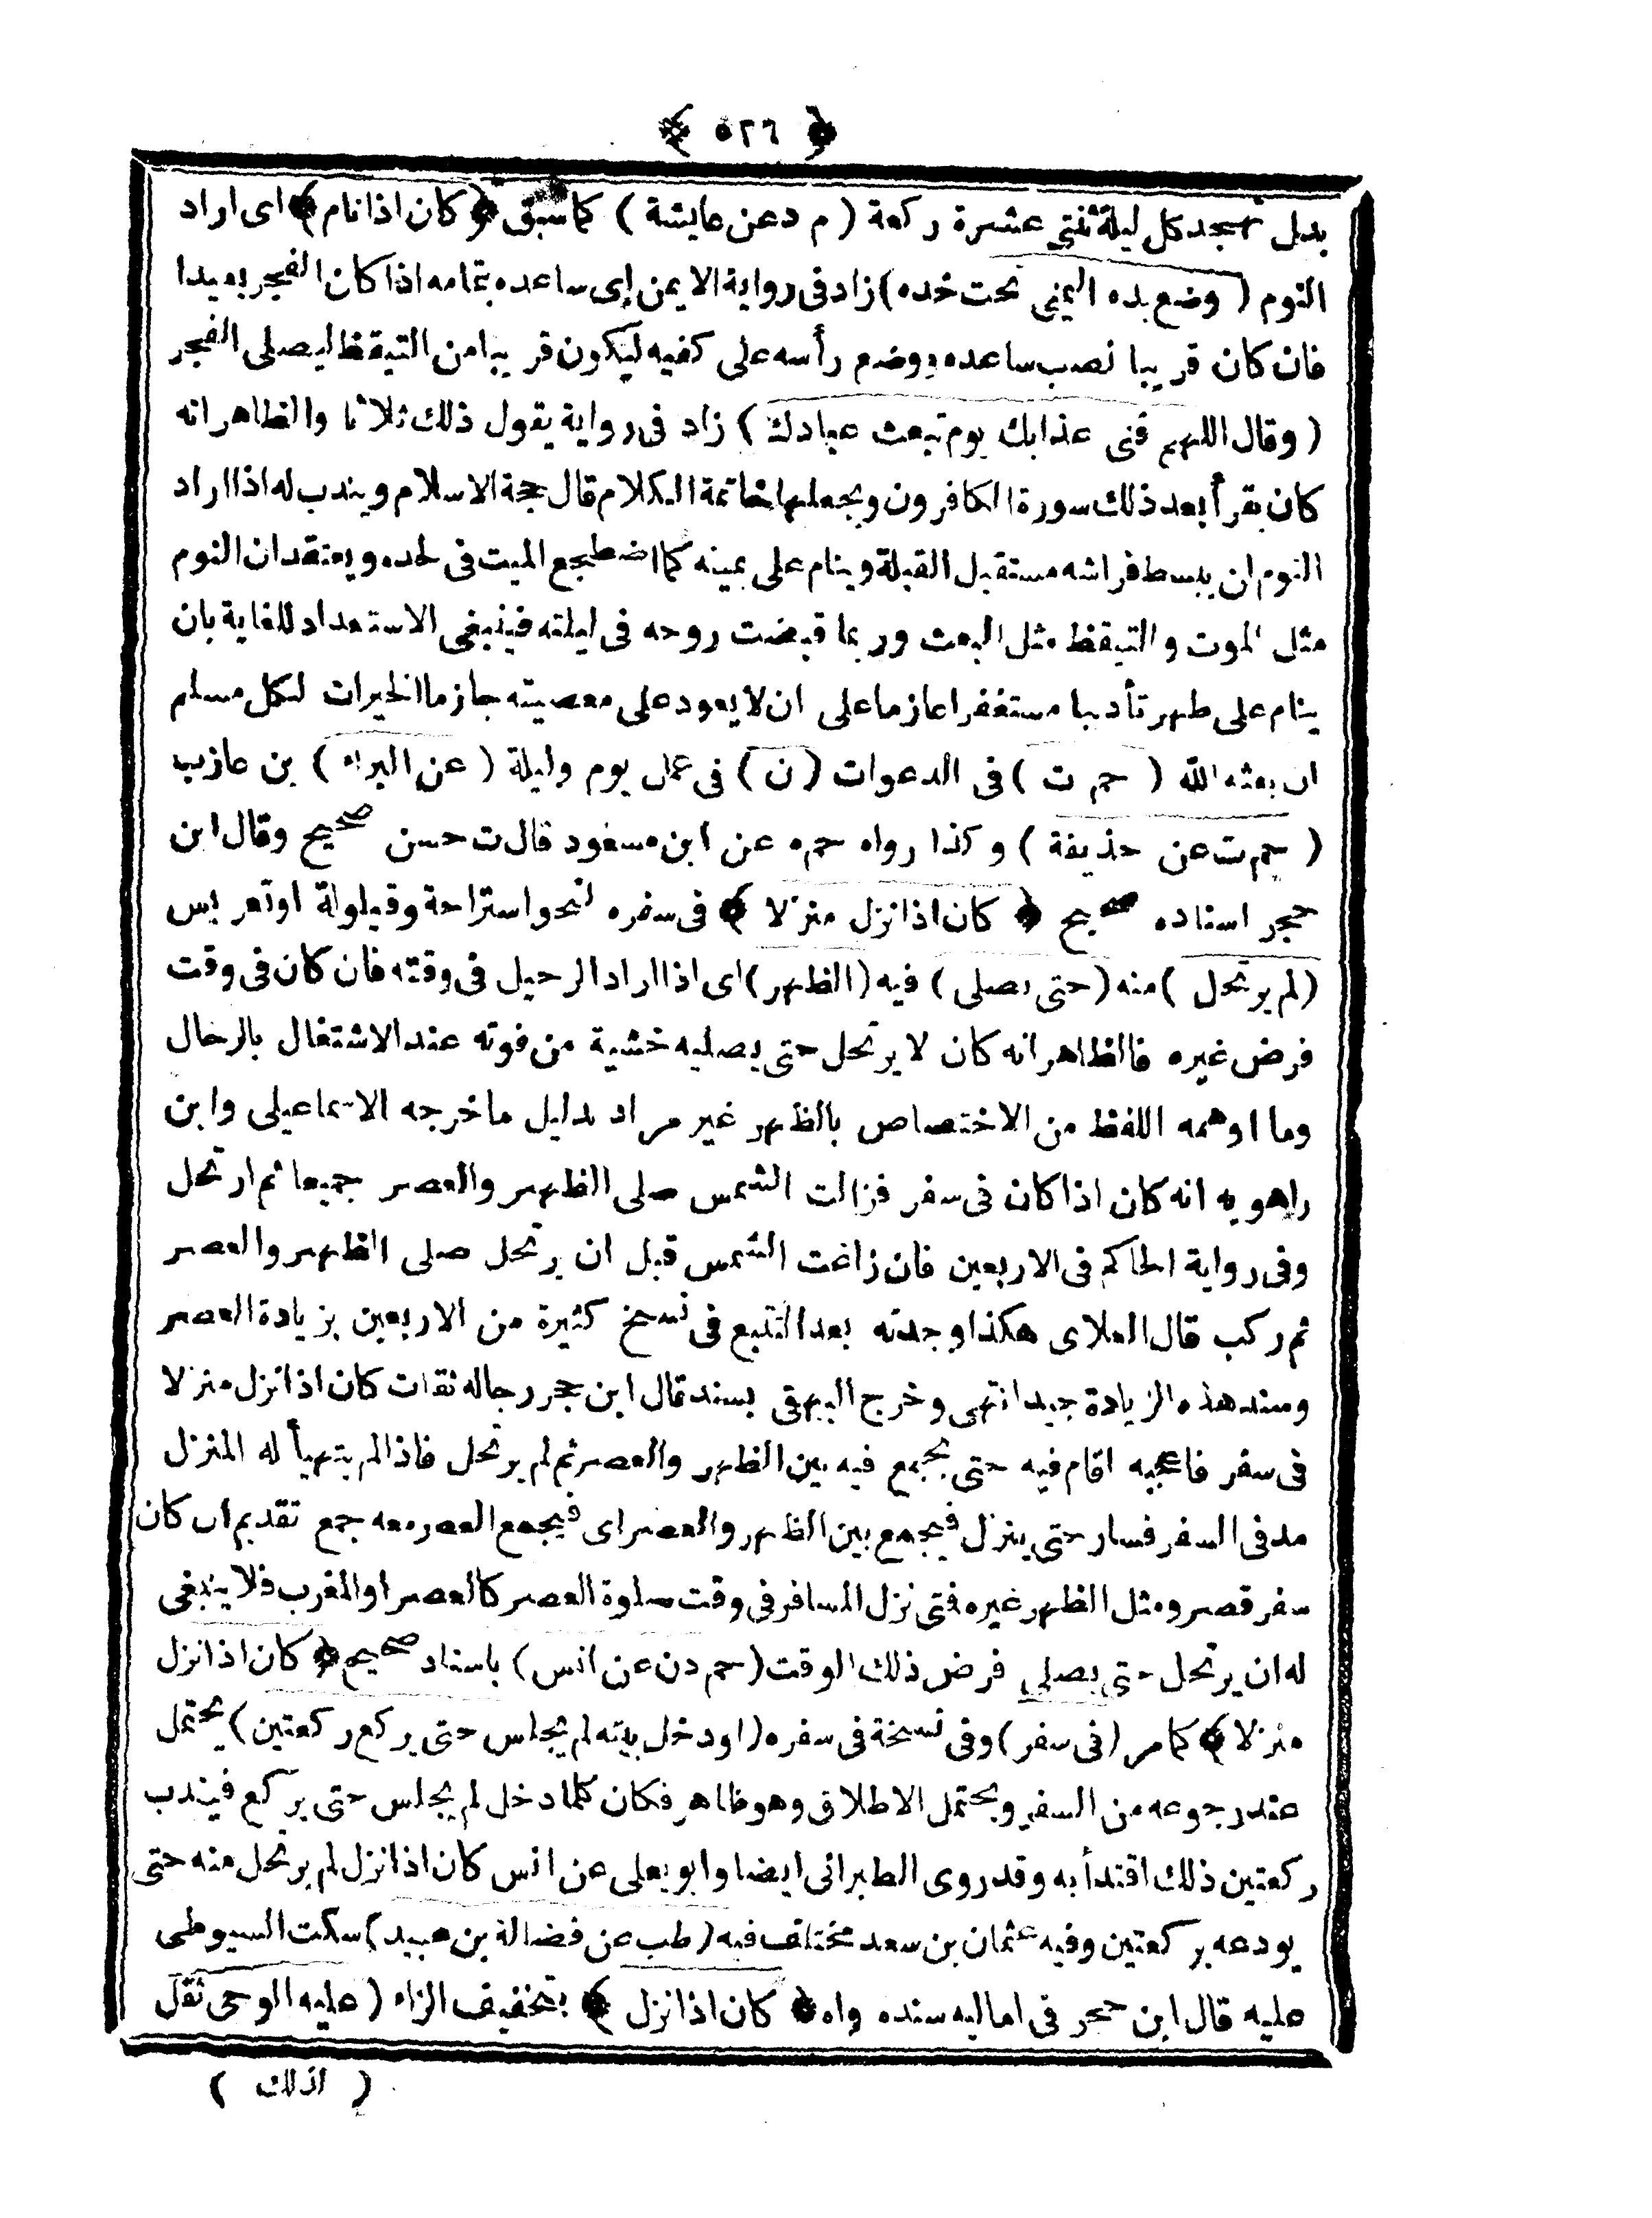 ﴿ ٥٢٦ ﴾
بدل تهجد كل ليلة ثنتى عشرة ركعة ( م د عن عايشة ) كما سبق ﴿ كان اذا نام ﴾ اى اراد
النوم ( وضع يده اليمنى تحت خده ) زاد فى رواية الايمن اى ساعده بتمامه اذا كان الفجر بعيدا
فان كان قريبا نصب ساعده ووضع رأسه على كفيه ليكون قريبا من التيقظ ليصلى الفجر
( وقال اللهم قنى عذابك يوم تبعث عبادك ) زاد فى رواية يقول ذلك ثلاثا والظاهر انه
كان يقرأ بعد ذلك سورة الكافرون ويجعلها خاتمة الكلام قال حجة الاسلام ويندب له اذا اراد
النوم ان يبسط فراشه مستقبل القبلة وينام على يمينه كما اضطجع الميت فى لحده ويعتقد ان النوم
مثل الموت والتيقظ مثل البعث وربما قبضت روحه فى ليلته فينبغى الاستعداد للغاية بان
ينام على طهر تأديبا مستغفرا عازما على ان لا يعود على معصيته جازما الخيرات لكل مسلم
ان بعثه الله ( حم ت ) فى الدعوات ( ن ) فى عمل يوم وليلة ( عن البراء ) بن عازب
( حم ت عن حذيفة ) وكذا رواه حم ه عن ابن مسعود قال ت حسن صحيح وقال ابن
حجر اسناده صحيح ﴿ كان اذا نزل منزلا ﴾ فى سفره لنحو استراحة وقيلولة او تعريس
( لم يرتحل ) منه ( حتى يصلى ) فيه ( الظهر ) اى اذا اراد الرحيل فى وقته فان كان فى وقت
فرض غيره فالظاهر انه كان لا يرتحل حتى يصليه خشية من فوته عند الاشتغال بالرحال
وما اوهمه اللفظ من الاختصاص بالظهر غير مراد بدليل ما خرجه الاسماعيلى وابن
راهويه انه كان اذا كان فى سفر فزالت الشمس صلى الظهر والعصر جميعا ثم ارتحل
وفى رواية الحاكم فى الاربعين فان زاغت الشمس قبل ان يرتحل صلى الظهر والعصر
ثم ركب قال العلاى هكذا وجدته بعد التتبع فى نسخ كثيرة من الاربعين بزيادة العصر
وسند هذه الزيادة جيد انتهى وخرج البيهقى بسند قال ابن حجر رجاله ثقات كان اذا نزل منزلا
فى سفر فاعجبه اقام فيه حتى يجمع فيه بين الظهر والعصر ثم لم يرتحل فاذا لم يتهيأ له المنزل
مد فى السفر فسار حتى ينزل فيجمع بين الظهر والعصر اى فيجمع العصر معه جمع تقديم ان كان
سفر قصر ومثل الظهر غيره فتى نزل المسافر فى وقت صلوة العصر كالعصر او المغرب فلا ينبغى
له ان يرتحل حتى يصلى فرض ذلك الوقت ( حم د ن عن انس ) باسناد صحيح ﴿ كان اذا نزل
منزلا ﴾ كما مر ( فى سفر ) وفى نسخة فى سفره ( او دخل بيته لم يجلس حتى يركع ركعتين ) يحتمل
عند رجوعه من السفر ويحتمل الاطلاق وهو ظاهر فكان كلما دخل لم يجلس حتى يركع فيندب
ركعتين ذلك اقتدأ به وقد روى الطبرانى ايضا وابو يعلى عن انس كان اذا نزل لم يرتحل منه حتى
يودعه بركعتين وفيه عثمان بن سعد مختلف فيه ( طب عن فضالة بن عبيد ) سكت السيوطى
عليه قال ابن حجر فى اماليه سنده واه ﴿ كان اذا نزل ﴾ بتخفيف الزاء ( عليه الوحى ثقل
( لذلك )